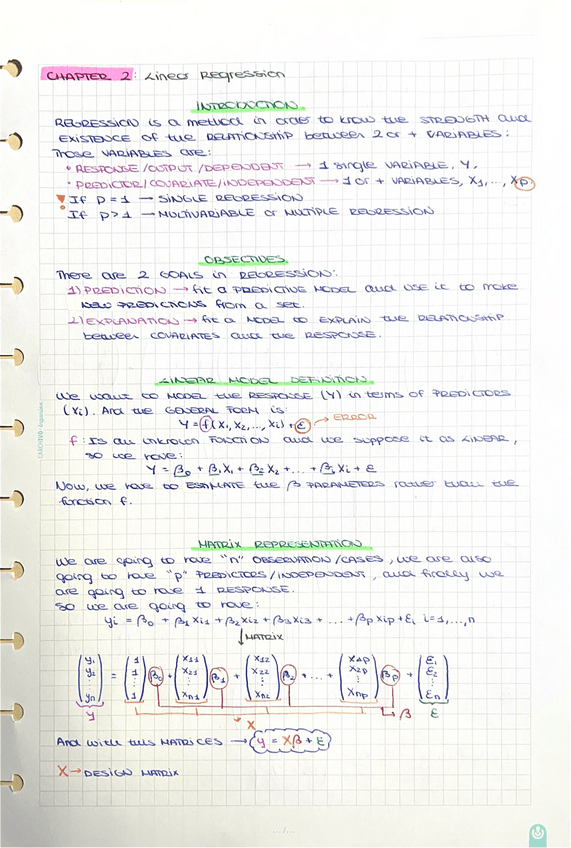 CHAPTER 2: Linear Regression
INTRODUCTION
REGRESSION is a method in order to know the STRENGTH and
EXISTENCE OF the RELATIONSHIP between 2 or + VARIABLES:
Those VARIABLES are:
• RESPONSE/OUTPUT/DEPENDENT → 1 single VARIABLE, Y,
• PREDICTOR/COVARIATE/INDEPENDENT → 1 or + VARIABLES, X₁,..., Xp
! If P = 1 — SINGLE REGRESSION
If p > 1 — MULTIVARIABLE or MULTIPLE REGRESSION
OBJECTIVES
There are 2 GOALS in REGRESSION:
1) PREDICTION → fit a PREDICTIVE MODEL and use it to make
NEW PREDICTIONS from a set.
2) EXPLANATION → fit a MODEL to EXPLAIN the RELATIONSHIP
between COVARIATES and the RESPONSE.
LINEAR MODEL DEFINITION
We want to MODEL the RESPONSE (Y) in terms of PREDICTORS
(Xi). And the GENERAL FORM is:
Y = f(X₁, X₂,..., Xi) + ε → ERROR
f: Is an unknown FUNCTION and we suppose it as LINEAR,
so we have:
Y = β₀ + β₁X₁ + β₂X₂ + ... + βiXi + ε
Now, we have to ESTIMATE the β PARAMETERS rather than the
function f.
MATRIX REPRESENTATION
We are going to have "n" OBSERVATION/CASES, we are also
going to have "p" PREDICTORS/INDEPENDENT, and finally we
are going to have 1 RESPONSE.
So we are going to have:
yi = β₀ + β₁Xi1 + β₂Xi2 + β₃Xi3 + ... + βpXip + εi i=1,...,n
↓ MATRIX
(y₁ y₂ ⋮ yn) = (1 1 ⋮ 1) β₀ + (X11 X21 ⋮ Xn1) β₁ + (X12 X22 ⋮ Xn2) β₂ + ... + (X1p X2p ⋮ Xnp) βp + (ε₁ ε₂ ⋮ εn)
y X β ε
And with this MATRICES → y = Xβ + ε
X → DESIGN MATRIX